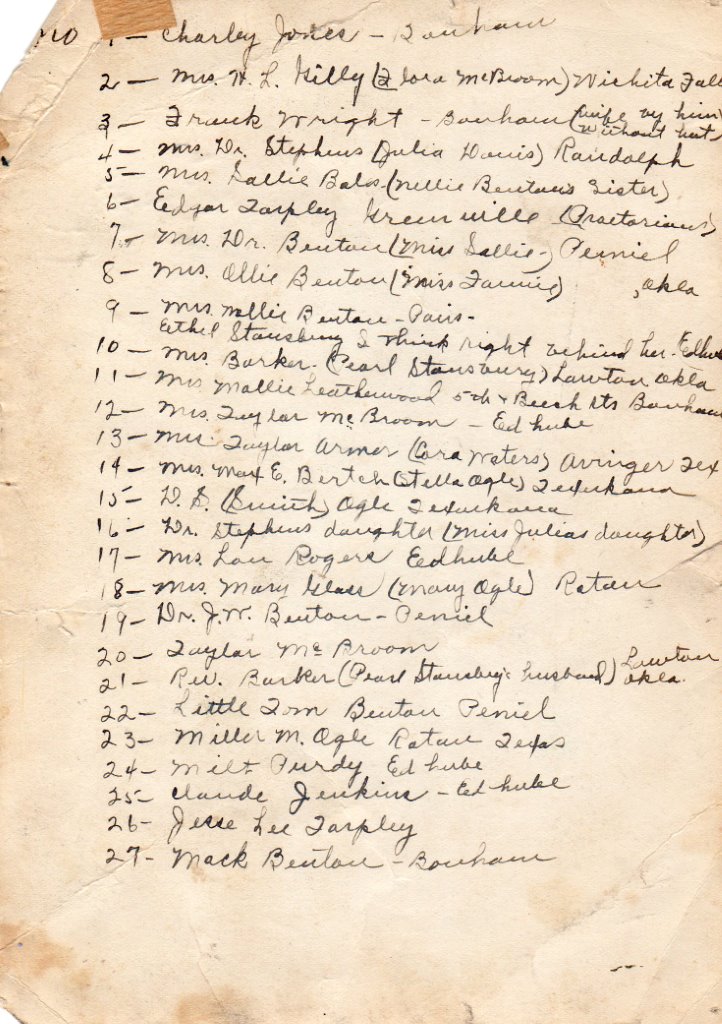 No 1 - Charley Jones - Bonham
2 - Mrs. W. L. Gilly (Flora McBroom) Wichita Fall
3 - Frank Wright - Bonham (wife by him
without hat)
4 - Mrs. Dr. Stephens (Julia Davis) Randolph
5 - Mrs. Sallie Bales (Nellie Benton's Sister)
6 - Edgar Tarpley Greenville (Praetorians)
7 - Mrs. Dr. Benton (Miss Sallie-) Peniel
8 - Mrs. Ollie Benton (Miss Fannie) , Okla
9 - Mrs. Mollie Benton - Paris -
Ethel Stansbury I think right behind her. Edhube
10 - Mrs. Barker. (Pearl Stansbury) Lawton Okla
11 - Mrs Mollie Leatherwood 5th & Beech Sts Bonham
12 - Mrs. Taylor McBroom - Edhube
13 - Mrs. Taylor Armor (Cora Waters) Avinger Tex
14 - Mrs. Max E. Bertch (Stella Ogle) Texarkana
15 - D. S. (Smith) Ogle Texarkana
16 - Dr. Stephens daughter (Miss Julias daughter)
17 - Mrs Lou Rogers Edhube
18 - Mrs. Mary Glass (Mary Ogle) Rotan
19 - Dr. J. W. Benton - Peniel
20 - Taylor McBroom
21 - Rev. Barker (Pearl Stansbury's husband) Lawton
Okla.
22 - Little Tom Benton Peniel
23 - Miller M. Ogle Rotan Texas
24 - Milt Purdy Edhube
25 - Claude Jenkins - Edhube
26 - Jesse Lee Tarpley
27 - Mack Benton - Bonham